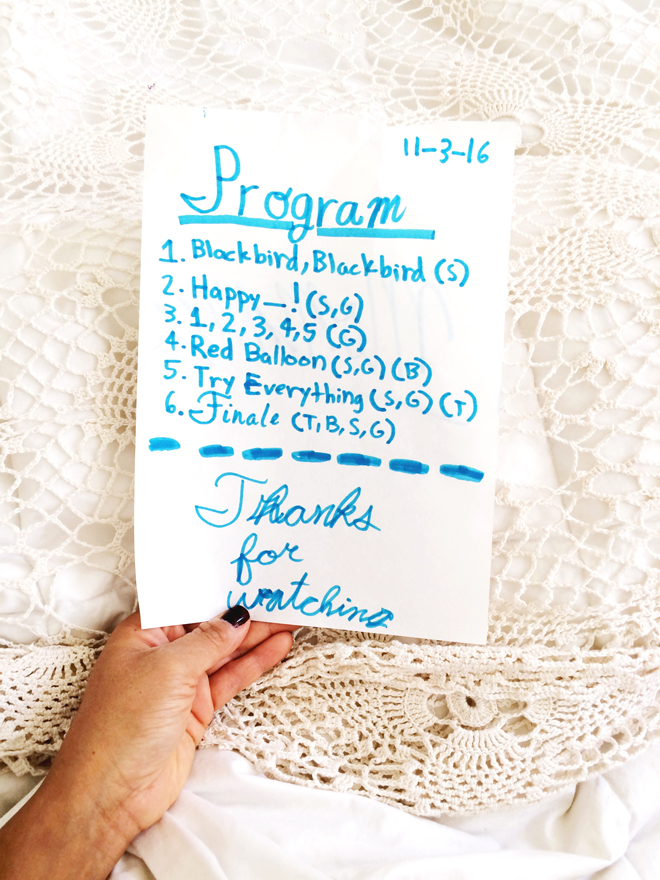 11-3-16
Program
1. Blackbird, Blackbird (S)
2. Happy—! (S,G)
3. 1, 2, 3, 4, 5 (G)
4. Red Balloon (S,G) (B)
5. Try Everything (S,G) (T)
6. Finale (T,B,S,G)
Thanks
for
watching